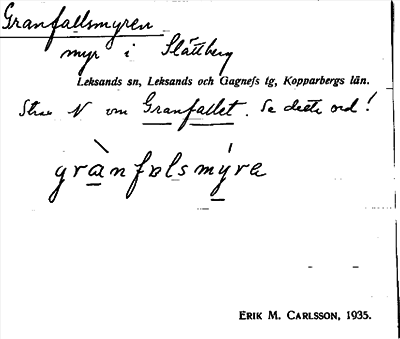 Granfallsmyren
myr i Slättberg
Leksands sn, Leksands och Gagnefs tg, Kopparbergs län.
Strax N om Granfallet. Se detta ord!
grànfalsmýra
ERIK M. CARLSSON, 1935.